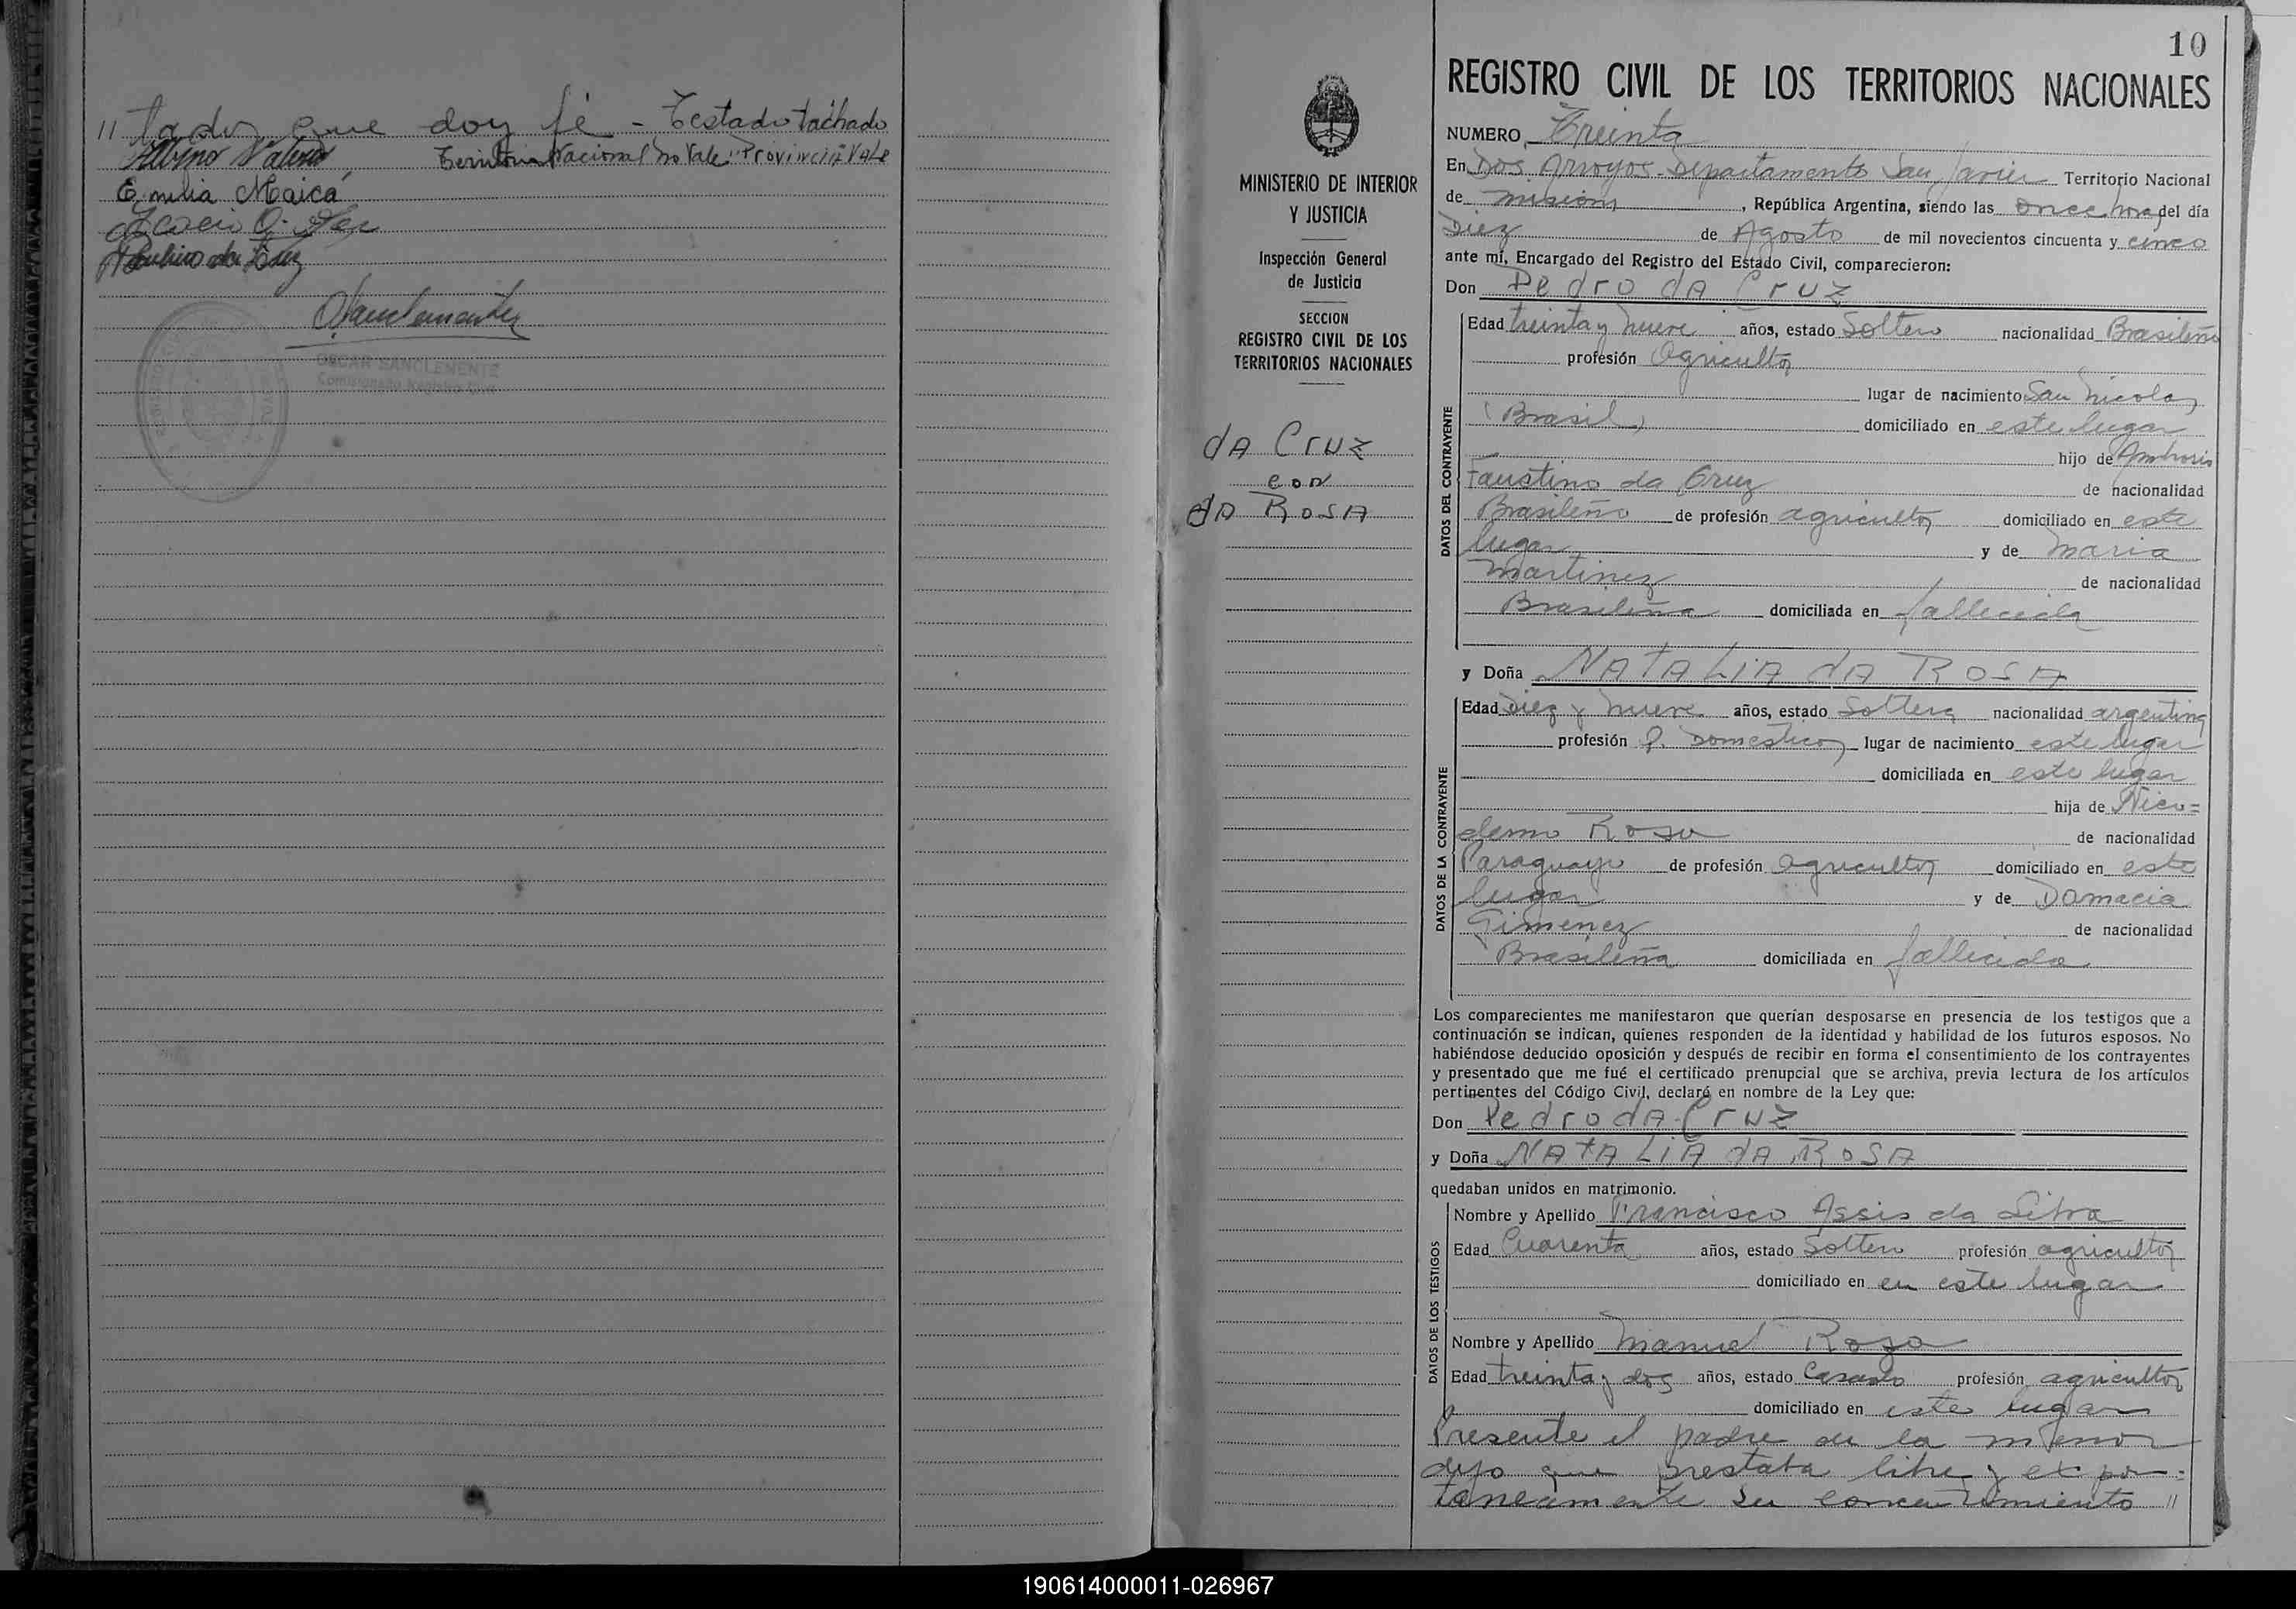 // tados que doy fé - Testado tachado
Albino Valerio Territorio Nacional no Vale "Provincia VALE
Emilia Maicá
da Luz
OSCAR SANCLEMENTE
Comisionado Registro Civil
10
MINISTERIO DE INTERIOR
Y JUSTICIA
Inspección General
de Justicia
SECCION
REGISTRO CIVIL DE LOS
TERRITORIOS NACIONALES
dA Cruz
con
dA ROSA
REGISTRO CIVIL DE LOS TERRITORIOS NACIONALES
NUMERO Treinta
En Dos Arroyos - Departamento San Javier Territorio Nacional
de Misiones, República Argentina, siendo las once horas del día
Diez de Agosto de mil novecientos cincuenta y cinco
ante mí, Encargado del Registro del Estado Civil, comparecieron:
Don Pedro dA Cruz
DATOS DEL CONTRAYENTE
Edad treinta y nueve años, estado Soltero nacionalidad Brasileño
profesión Agricultor
lugar de nacimiento San Nicolas
(Brasil) domiciliado en este lugar
hijo de Ambrosio
Faustino da Cruz de nacionalidad
Brasileño de profesión agricultor domiciliado en este
lugar y de Maria
Martinez de nacionalidad
Brasileña domiciliada en fallecida
y Doña NATALIA dA ROSA
DATOS DE LA CONTRAYENTE
Edad Diez y nueve años, estado Soltera nacionalidad argentina
profesión Q. Domesticos lugar de nacimiento este lugar
domiciliada en este lugar
hija de Nico=
demo Rosa de nacionalidad
Paraguayo de profesión agricultor domiciliado en este
lugar y de Damacia
Gimenez de nacionalidad
Brasileña domiciliada en fallecida
Los comparecientes me manifestaron que querían desposarse en presencia de los testigos que a
continuación se indican, quienes responden de la identidad y habilidad de los futuros esposos. No
habiéndose deducido oposición y después de recibir en forma el consentimiento de los contrayentes
y presentado que me fué el certificado prenupcial que se archiva, previa lectura de los artículos
pertinentes del Código Civil, declaré en nombre de la Ley que:
Don Pedro dA Cruz
y Doña NATALIA dA ROSA
quedaban unidos en matrimonio.
DATOS DE LOS TESTIGOS
Nombre y Apellido Francisco Assis da Silva
Edad Cuarenta años, estado Soltero profesión agricultor
domiciliado en en este lugar
Nombre y Apellido Manuel Rosa
Edad treinta y dos años, estado Casado profesión agricultor
domiciliado en este lugar
Presente el padre de la menor
dijo que prestaba libre y expon=
taneamente su consentimiento //
190614000011-026967